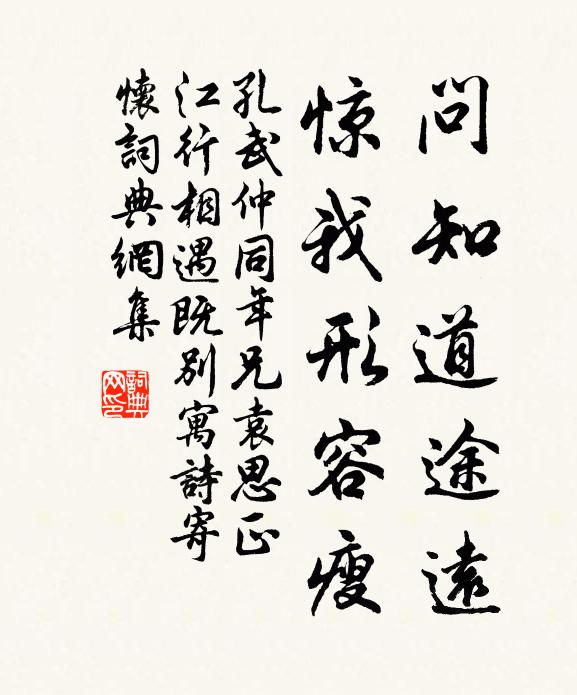 问知道途遠
惊我形容瘦
孔武仲同年兄袁思正
江行相遇既别寓詩寄
懷詞典網集
詞典
网印